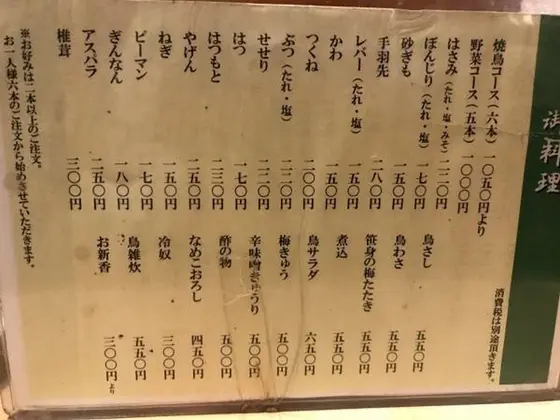 御料理
焼鳥コース(六本) 一〇五〇円より
野菜コース(五本) 一〇〇〇円
はさみ(たれ・塩・みそ) 二二〇円
ぼんじり(たれ・塩) 一七〇円
砂ぎも 一五〇円
手羽先 二八〇円
レバー(たれ・塩) 一五〇円
かわ 一五〇円
つくね 二〇〇円
ぶつ(たれ・塩) 二二〇円
せせり 二二〇円
はつ 一七〇円
はつもと 二三〇円
やげん 二五〇円
ねぎ 一五〇円
ピーマン 一七〇円
ぎんなん 一八〇円
アスパラ 二五〇円
椎茸 三〇〇円
消費税は別途頂きます。
鳥さし 五五〇円
鳥わさ 五五〇円
笹身の梅たたき 五五〇円
煮込 五五〇円
鳥サラダ 六五〇円
梅きゅう 五〇〇円
辛味噌きゅうり 五〇〇円
酢の物 五〇〇円
なめこおろし 四五〇円
冷奴 三〇〇円
鳥雑炊 五五〇円
お新香 三〇〇円より
※お好みは二本以上のご注文。
お一人様六本のご注文から始めさせていただきます。